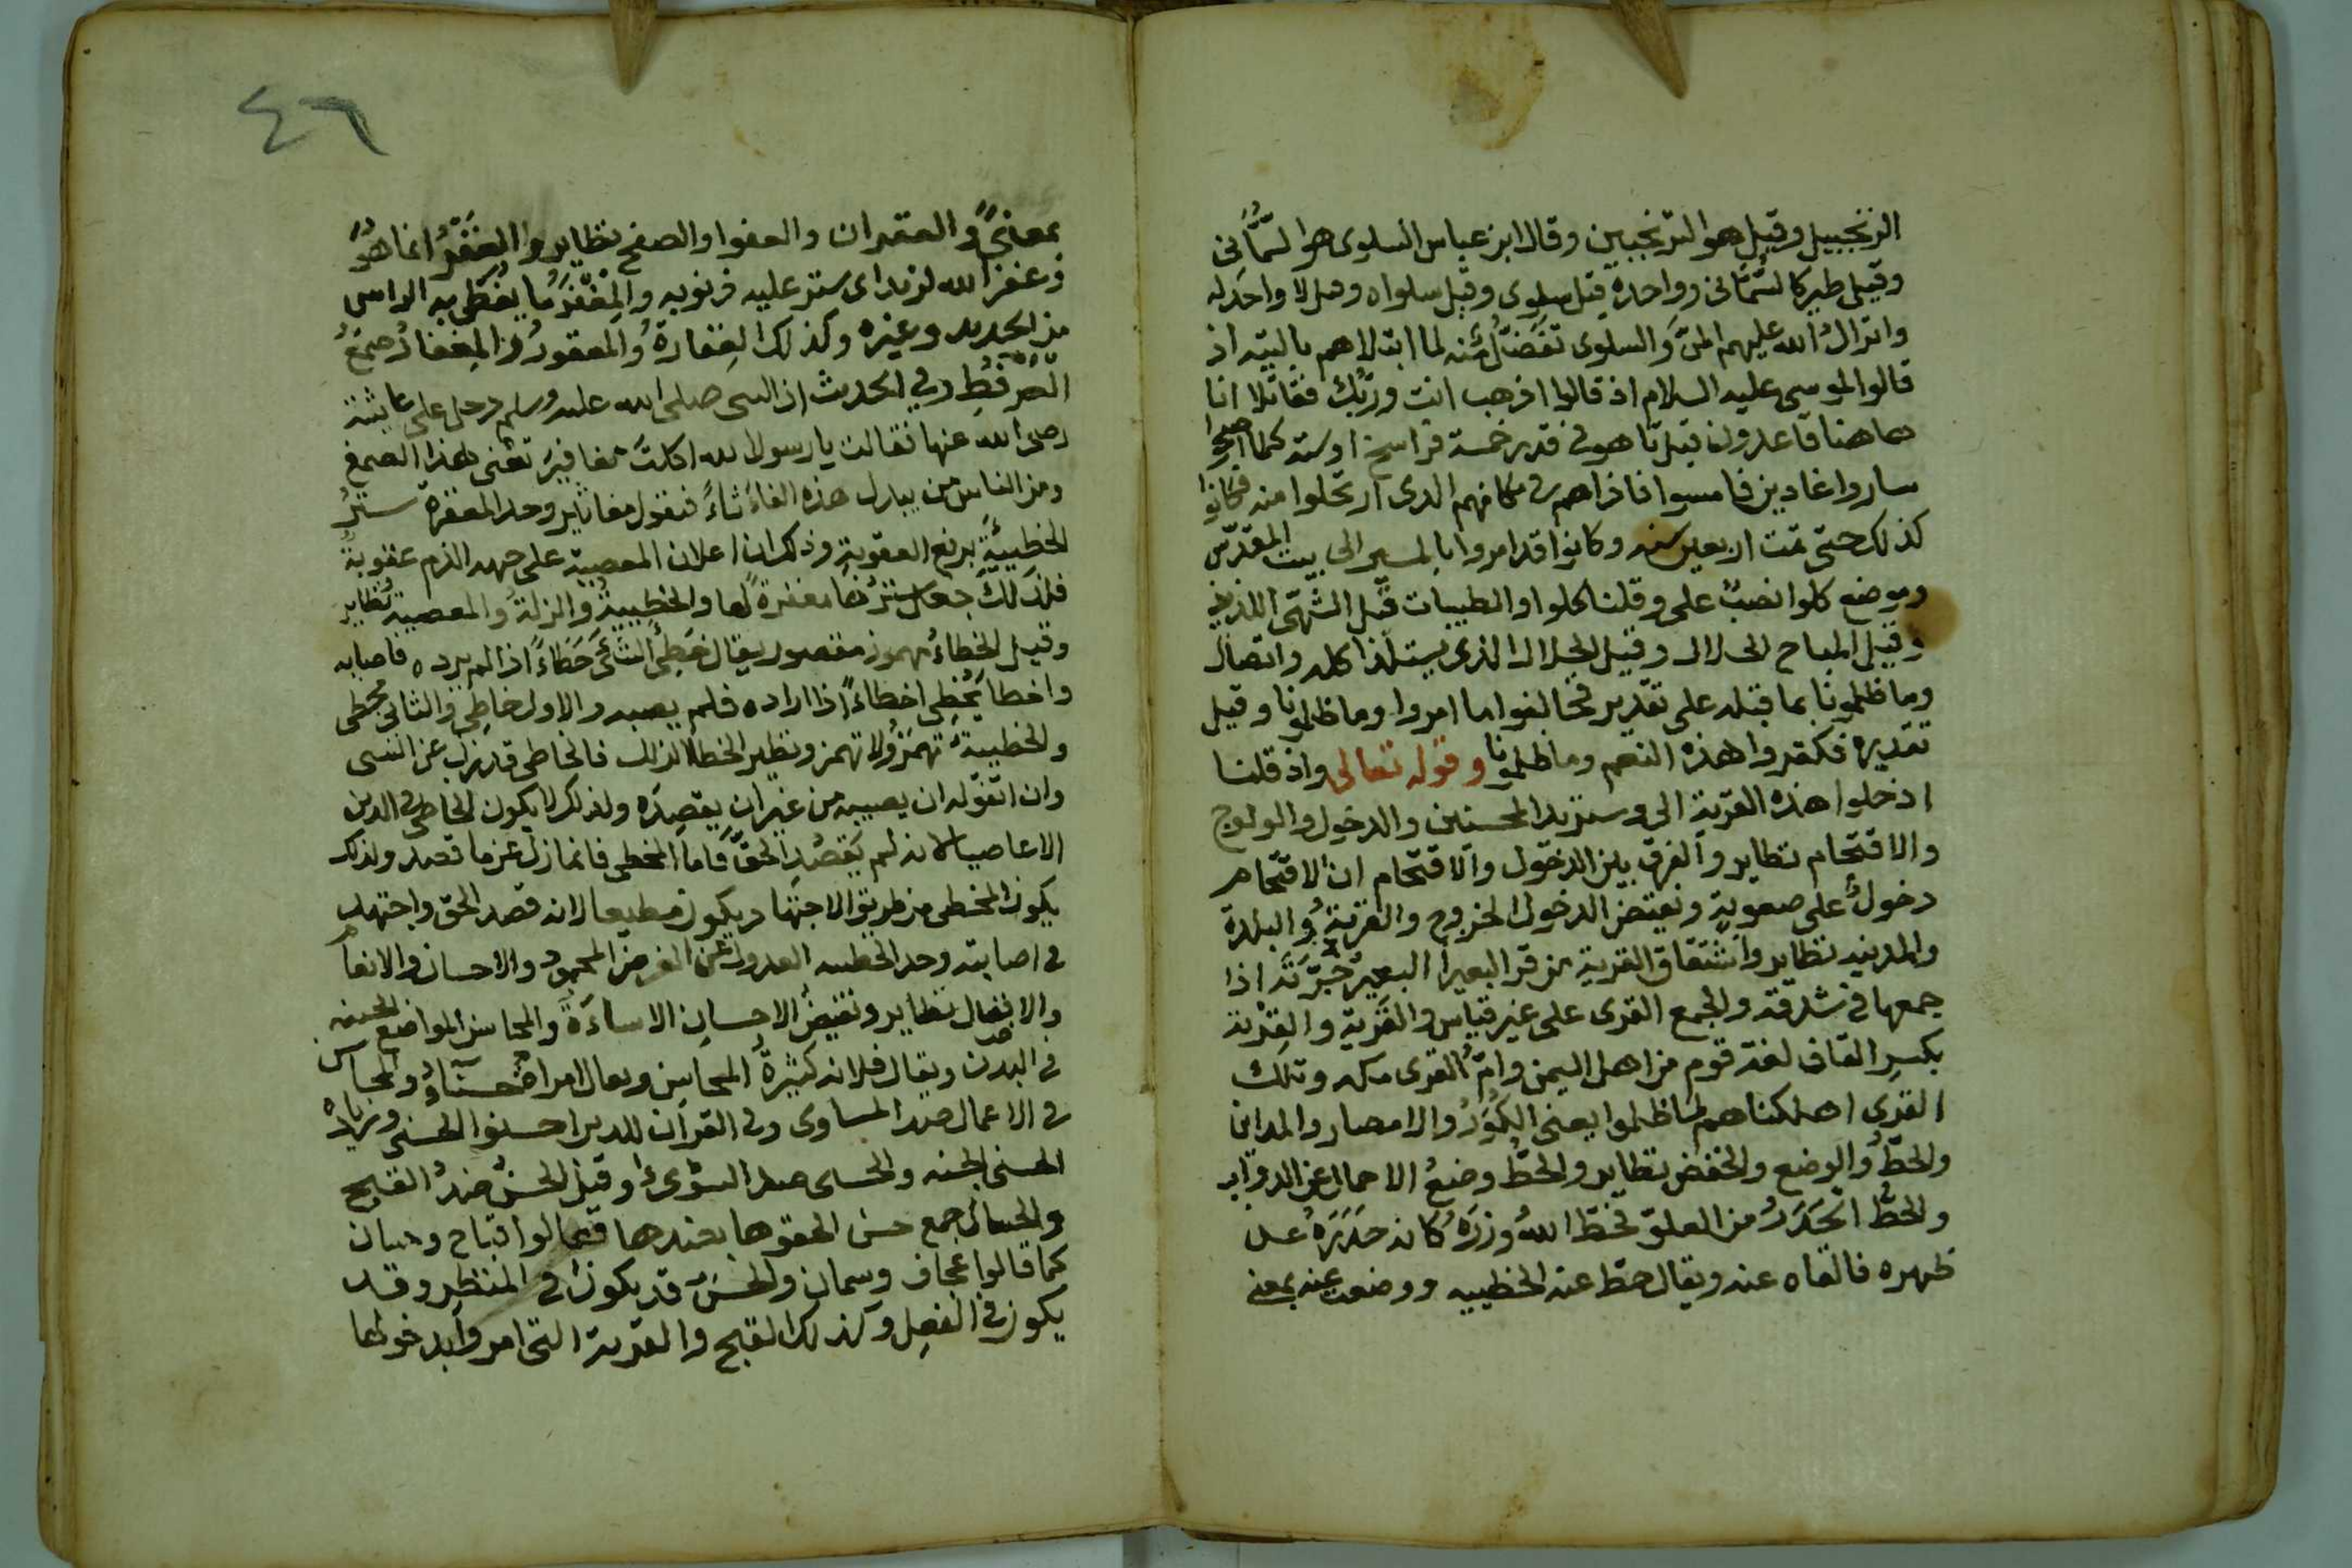 الزنجبيل وقيل هو الترنجبين وقال ابن عباس السلوى هو السمانى
وقيل طير كالسمانى وواحدة قيل سلوى وقيل سلواه وقيل لا واحد له
وانزال الله عليهم المن والسلوى تفضل منه لما ابتلاهم بالتيه اذ
قالوا لموسى عليه السلام اذ قالوا اذهب انت وربك فقاتلا انا
هاهنا قاعدون قيل تاهوا في قدر خمسة فراسخ او ستة كلما اصبحوا
ساروا غادين فامسوا فاذاهم في مكانهم الذى ارتحلوا منه فكانوا
كذلك حتى تمت اربعين سنه وكانوا قد امروا بالمسير الى بيت المقدس
وموضع كلوا نصب على وقلنا كلوا والطيبات قيل الشهى اللذيذ
وقيل المباح الحلال وقيل الحلال الذى يستلذ اكله واتصال
وما ظلمونا بما قبله على تقدير فخالفوا ما امروا وما ظلمونا وقيل
تقديره فكفروا هذه النعم وما ظلمونا وقوله تعالى واذ قلنا
ادخلوا هذه القرية الى وسنزيد المحسنين والدخول والولوج
والاقتحام نظاير والفرق بين الدخول والاقتحام ان الاقتحام
دخول على صعوبة ونقيض الدخول الخروج والقرية والبلدة
والمدينه نظاير واشتقاق القرية من قر البعير البعير جرته اذا
جمعها في شدقه والجمع القرى على غير قياس والقرية والقرية
بكسر القاف لغة قوم من اهل اليمن وام القرى مكه وتلك
القرى اهلكناهم لما ظلموا يعنى الكور والامصار والمداين
والحط والوضع والخفض نظاير والحط وضع الاحمال عن الدواب
والحط الحدر من العلو فحط الله وزره كانه حدره على
ظهره فالقاه عنه ويقال حط عنه الخطيه ووضعت عنه بمعنى
٤٦
بمعنى والغفران والعفوا والصفح نظاير والغفر انما هو
وغفر الله لزيد اى ستر عليه ذنوبه والمغفر ما يغطى به الراس
من الحديد وغيره وكذلك الغفارة والمغفور والمغفار صمغ
العرفط وفي الحديث ان النبى صلى الله عليه وسلم دخل على عايشة
رضى الله عنها فقالت يا رسول الله اكلت مغافير تعنى هذا الصمغ
ومن الناس من يبدل هذه الفاء ثاء فيقول مغاثير وحد المغفرة ستر
الخطيئة برفع العقوبة وذلك ان اعلان المعصية على جهه الذم عقوبة
فلذلك جعل سترها مغفرة لها والخطيية والزلة والمعصية نظاير
وقيل الخطاء مهموز مقصور يقال خطئ الشئ خطاء اذا لم يرده فاصابه
واخطا يخطى اخطاء اذا اراده فلم يصبه والاول خاطى والثانى مخطى
والخطيية تهمز ولا تهمز ونظير الخطا الزلل فالخاطى قد زل عن الشى
وان اتفق له ان يصيبه من غير ان يقصده ولذلك لا يكون الخاطى في الدين
الا عاصيا لانه لم يقصد الحق فاما المخطى فانما زل عن ما قصد ولذلك
يكون المخطى من طريق الاجتهاد ويكون مطيعا لانه قصد الحق واجتهد
في اصابته وحد الخطيه العدول عن الغرض المحمود والاحسان والانعام
والافضال نظاير ونقيض الاحسان الاساءة والمحاسن المواضع الحسنه
في البدن ويقال فلانه كثيرة المحاسن ويقال امراة حسناء والمحاسن
في الاعمال ضد المساوى وفي القرآن للذين احسنوا الحسنى وزيادة
الحسنى الجنه والحسنى ضد السؤى وقيل الحسن ضد القبيح
والحسان جمع حسن الحقوها بضدها فقالوا قباح وحسان
كما قالوا عجاف وسمان والحسن قد يكون في المنتظر وقد
يكون في الفعل وكذلك القبح والقرية التى امروا بدخولها